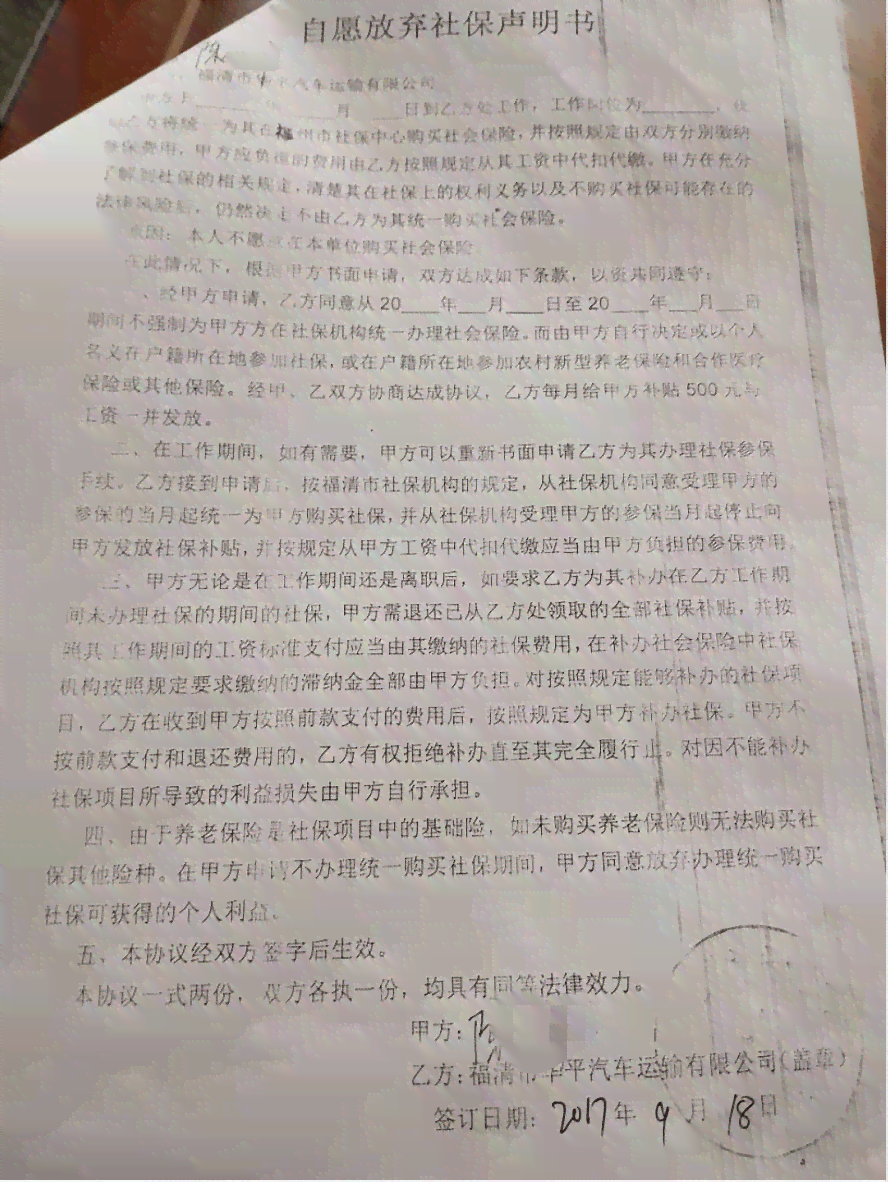 自愿放弃社保声明书
陈
福清市华平汽车运输有限公司
月____日到乙方处工作，工作岗位为____，按
乙方将统一为其在福州市社保中心购买社会保险，并按照规定由双方分别缴纳
参保费用，甲方应负担的费用由乙方按照规定从其工资中代扣代缴。甲方在充分
了解到社保的相关规定，清楚其在社保上的权利义务以及不购买社保可能存在的
法律风险后，仍然决定不由乙方为其统一购买社会保险。
原因：本人不愿意在本单位购买社会保险
在此情况下，根据甲方书面申请，双方达成如下条款，以资共同遵守：
、经甲方申请，乙方同意从20___年___月___日至20___年___月___日
期间不强制为甲方方在社保机构统一办理社会保险。而由甲方自行决定或以个人
名义在户籍所在地参加社保，或在户籍所在地参加农村新型养老保险和合作医疗
保险或其他保险。经甲、乙双方协商达成协议，乙方每月给甲方补贴500元与
工资一并发放。
二、在工作期间，如有需要，甲方可以重新书面申请乙方为其办理社保参保
手续。乙方接到申请后，按福清市社保机构的规定，从社保机构同意受理甲方的
参保的当月起统一为甲方购买社保，并从社保机构受理甲方的参保当月起停止向
甲方发放社保补贴，并按规定从甲方工资中代扣代缴应当由甲方负担的参保费用。
三、甲方无论是在工作期间还是离职后，如要求乙方为其补办在乙方工作期
间未办理社保的期间的社保，甲方需退还已从乙方处领取的全部社保补贴，并按
照其工作期间的工资标准支付应当由其缴纳的社保费用，在补办社会保险中社保
机构按照规定要求缴纳的滞纳金全部由甲方负担。对按照规定能够补办的社保项
目，乙方在收到甲方按照前款支付的费用后，按照规定为甲方补办社保。甲方不
按前款支付和退还费用的，乙方有权拒绝补办直至其完全履行止。对因不能补办
社保项目所导致的利益损失由甲方自行承担。
四、由于养老保险是社保项目中的基础险，如未购买养老保险则无法购买社
保其他险种。在甲方申请不办理统一购买社保期间，甲方同意放弃办理统一购买
社保可获得的个人利益。
五、本协议经双方签字后生效。
本协议一式两份，双方各执一份，均具有同等法律效力。
甲方：
乙方：福清市华平汽车运输有限公司（盖章）
签订日期：2017年9月18日